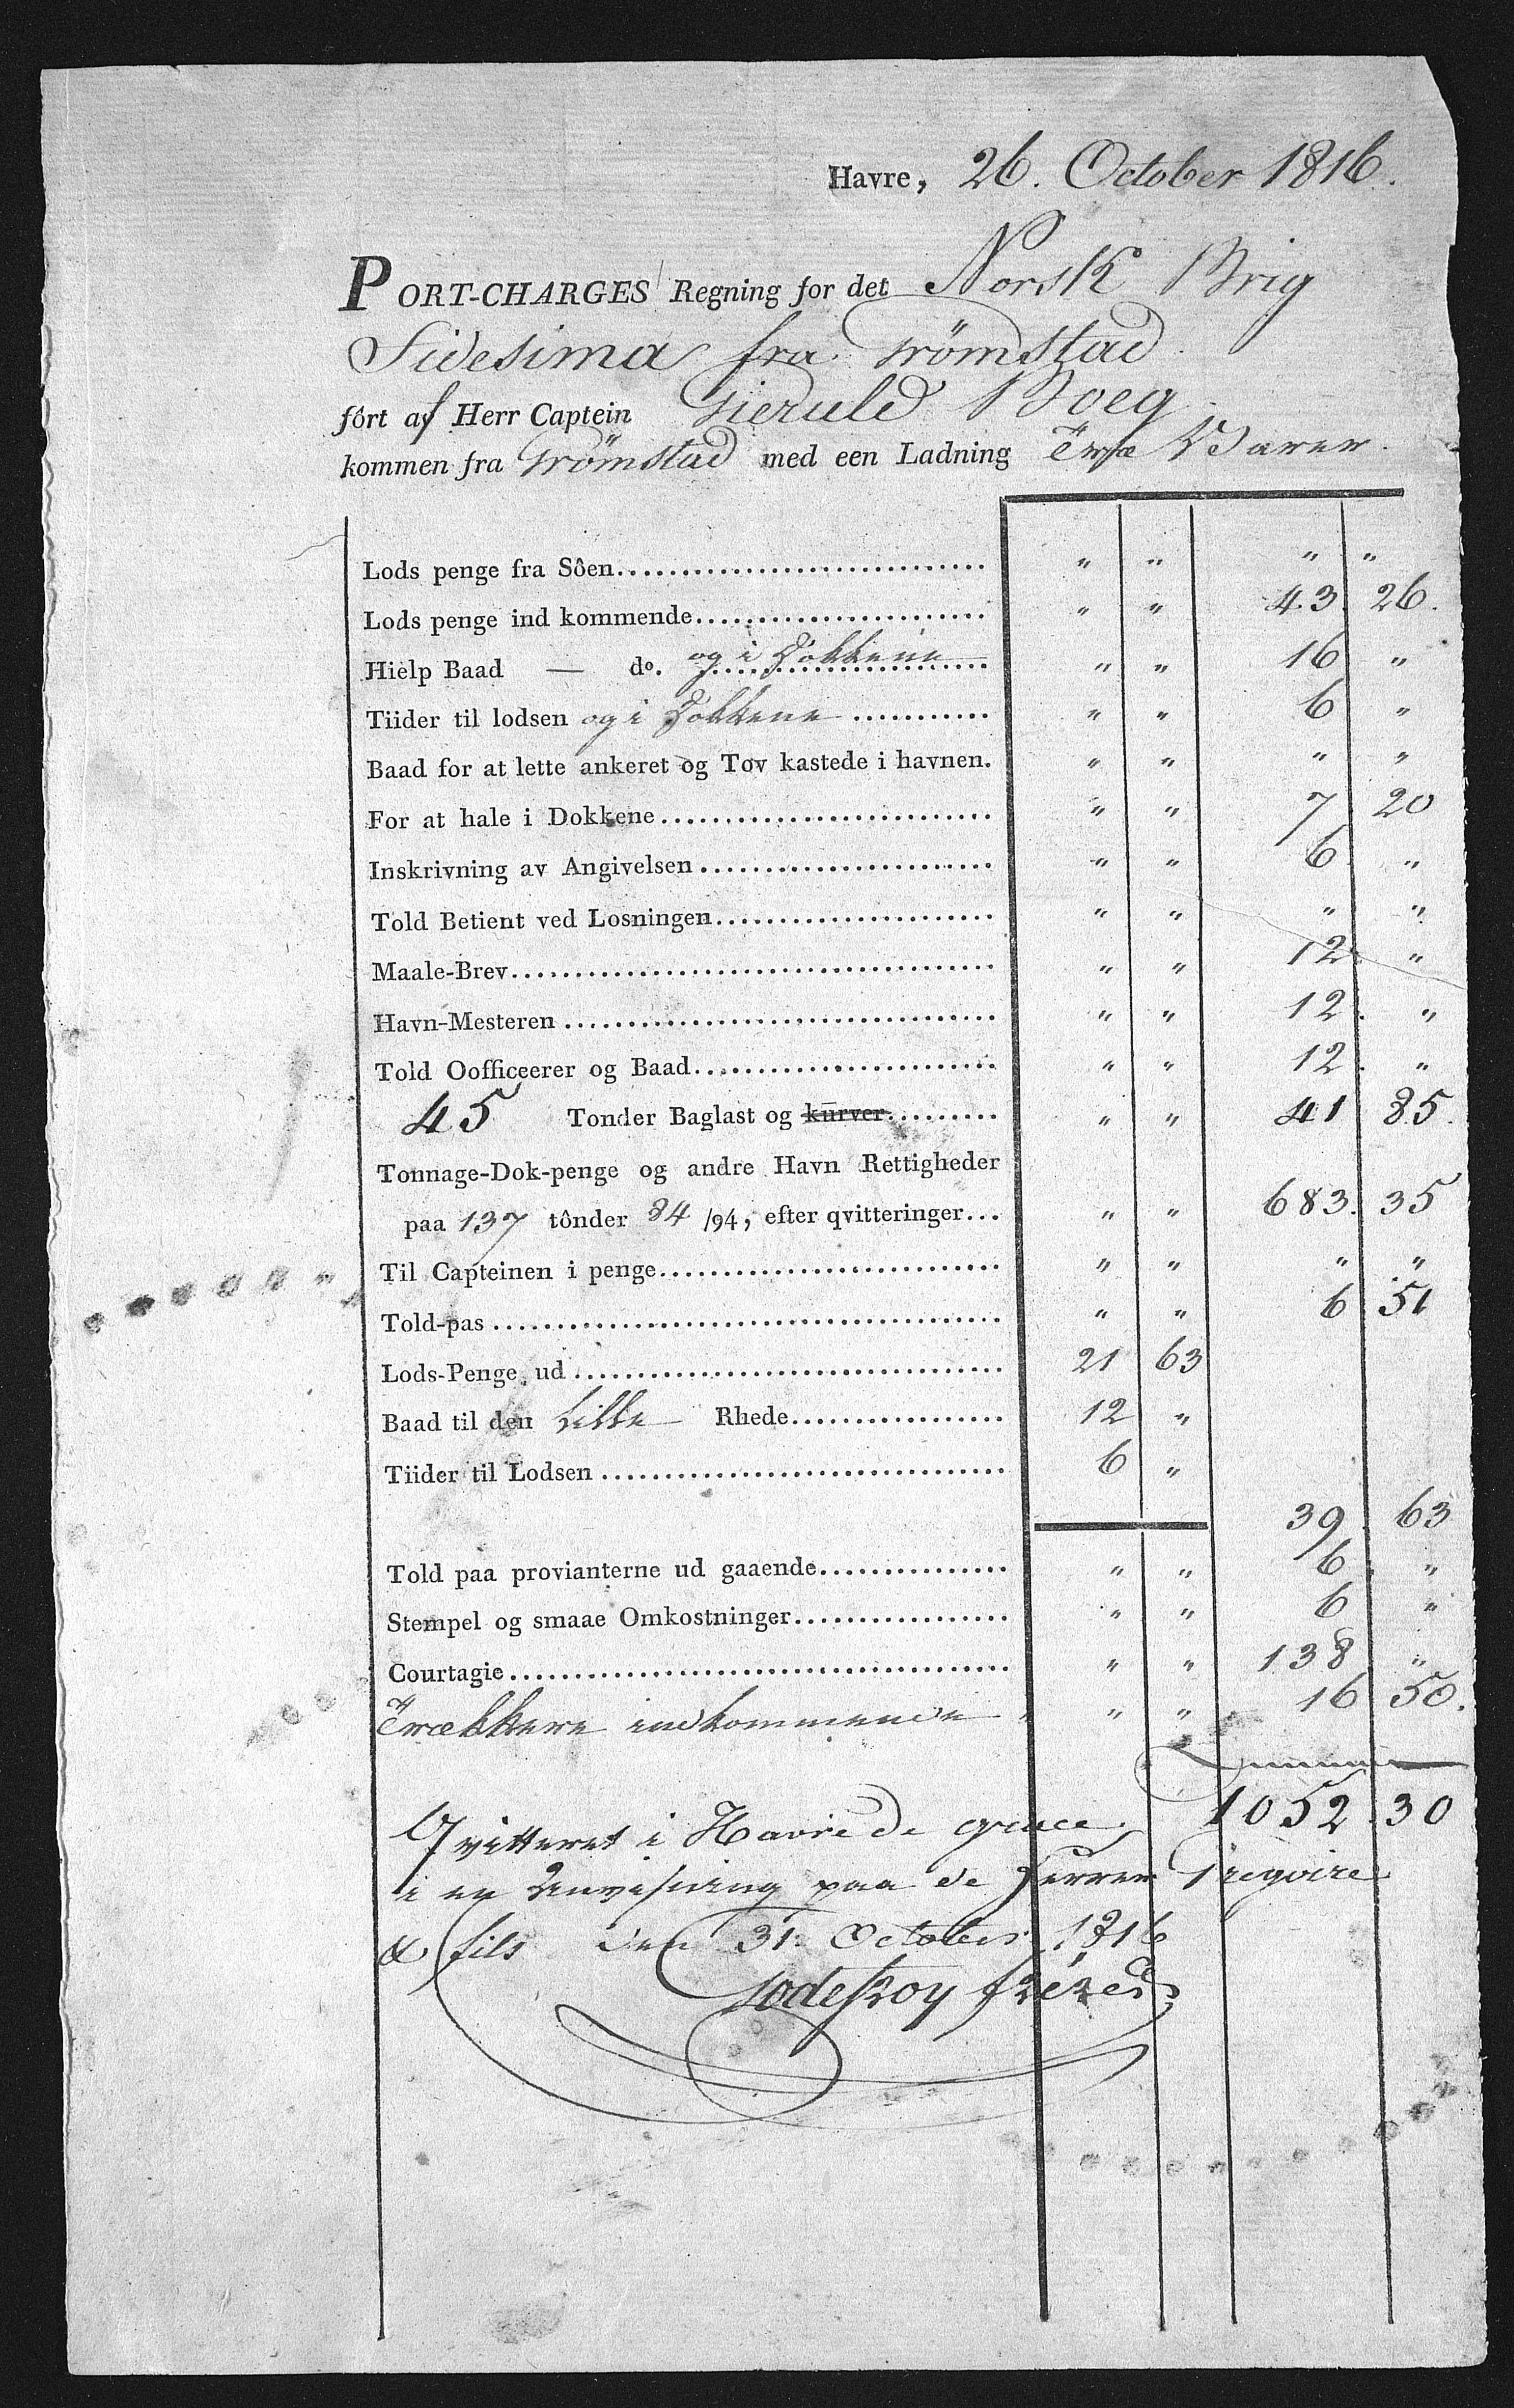 Havre, 26. October 1816.
PORT-CHARGES Regning for det Norsk Brig
Sidesima fra Trömstad
fôrt af Herr Captein Gieruld Boeg
kommen fra Trömstad med een Ladning Træ Varer.
Lods penge fra Sôen.............................. " " " "
Lods penge ind kommende........................ " " 43. 26.
Hielp Baad — do. og i Dokkene " " 16 "
Tiider til lodsen og i Dokkene ........... " " 6 "
Baad for at lette ankeret og Tov kastede i havnen. " " " "
For at hale i Dokkene........................... " " 7. 20
Inskrivning av Angivelsen ........................ " " 6 "
Told Betient ved Losningen...................... " " " "
Maale-Brev....................................... " " 12. "
Havn-Mesteren ................................... " " 12. "
Told Oofficeerer og Baad........................ " " 12. "
45 Tonder Baglast og kurver......... " " 41 85.
Tonnage-Dok-penge og andre Havn Rettigheder
paa 137 tônder 84 /94, efter qvitteringer... " " 683. 35
Til Capteinen i penge............................ " " " "
Told-pas ......................................... " " 6 51
Lods-Penge ud ................................... 21 63
Baad til den Lille Rhede................. 12 "
Tiider til Lodsen ................................ 6 "
39. 63
Told paa provianterne ud gaaende............... " " 6. "
Stempel og smaae Omkostninger................. " " 6 "
Courtagie........................................ " " 138 "
Trækkere indkommende " " 16 50.
1052. 30
Qvitteret i Havre de grace.
i en Anvisning paa de Herrer Gregoire
& fils den 31. October 1816
Godeffroy fréres